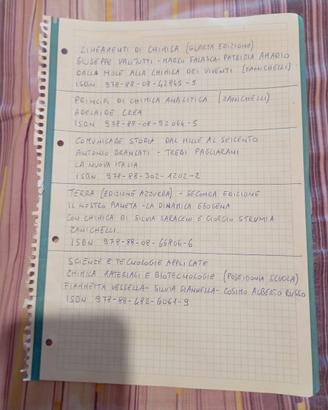 LINEAMENTI DI CHIMICA (QUARTA EDIZIONE)
GIUSEPPE VALITUTTI - MARCO FALASCA - PATRIZIA AMADIO
DALLA MOLE ALLA CHIMICA DEI VIVENTI (ZANICHELLI)
ISBN 978-88-08-42845-5
PRINCIPI DI CHIMICA ANALITICA (ZANICHELLI)
ADELAIDE CREA
ISBN 978-88-08-92064-5
COMUNICARE STORIA DAL MILLE AL SEICENTO
ANTONIO BRANCATI - TREBI PAGLIARANI
LA NUOVA ITALIA
ISBN 978-88-302-0202-2
TERRA (EDIZIONE AZZURRA) - SECONDA EDIZIONE
IL NOSTRO PIANETA - LA DINAMICA ESOGENA
CON CHIMICA DI SILVIA SARACENI E GIORGIO STRUMIA
ZANICHELLI
ISBN 978-88-08-65806-6
SCIENZE E TECNOLOGIE APPLICATE
CHIMICA MATERIALI E BIOTECNOLOGIE (POSEIDONIA SCUOLA)
FIAMMETTA VESSELLA - SILVIA GIANNELLA - COSIMO ALBERTO RUSSO
ISBN 978-88-482-6061-9